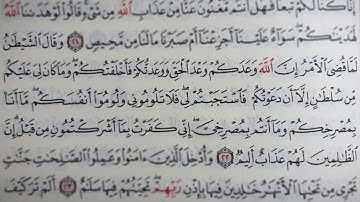 إِنَّا كُنَّا لَكُمْ تَبَعًا فَهَلْ أَنتُم مُّغْنُونَ عَنَّا مِنْ عَذَابِ ٱللَّهِ مِن شَىْءٍ قَالُوا۟ لَوْ هَدَىٰنَا ٱللَّهُ
لَهَدَيْنَٰكُمْ سَوَآءٌ عَلَيْنَآ أَجَزِعْنَآ أَمْ صَبَرْنَا مَا لَنَا مِن مَّحِيصٍ ٢١ وَقَالَ ٱلشَّيْطَٰنُ
لَمَّا قُضِىَ ٱلْأَمْرُ إِنَّ ٱللَّهَ وَعَدَكُمْ وَعْدَ ٱلْحَقِّ وَوَعَدتُّكُمْ فَأَخْلَفْتُكُمْ وَمَا كَانَ لِىَ عَلَيْكُم
مِّن سُلْطَٰنٍ إِلَّآ أَن دَعَوْتُكُمْ فَٱسْتَجَبْتُمْ لِى فَلَا تَلُومُونِى وَلُومُوٓا۟ أَنفُسَكُم مَّآ أَنَا۠
بِمُصْرِخِكُمْ وَمَآ أَنتُم بِمُصْرِخِىَّ إِنِّى كَفَرْتُ بِمَآ أَشْرَكْتُمُونِ مِن قَبْلُ إِنَّ
ٱلظَّٰلِمِينَ لَهُمْ عَذَابٌ أَلِيمٌ ٢٢ وَأُدْخِلَ ٱلَّذِينَ ءَامَنُوا۟ وَعَمِلُوا۟ ٱلصَّٰلِحَٰتِ جَنَّٰتٍ
تَجْرِى مِن تَحْتِهَا ٱلْأَنْهَٰرُ خَٰلِدِينَ فِيهَا بِإِذْنِ رَبِّهِمْ تَحِيَّتُهُمْ فِيهَا سَلَٰمٌ ٢٣ أَلَمْ تَرَ كَيْفَ